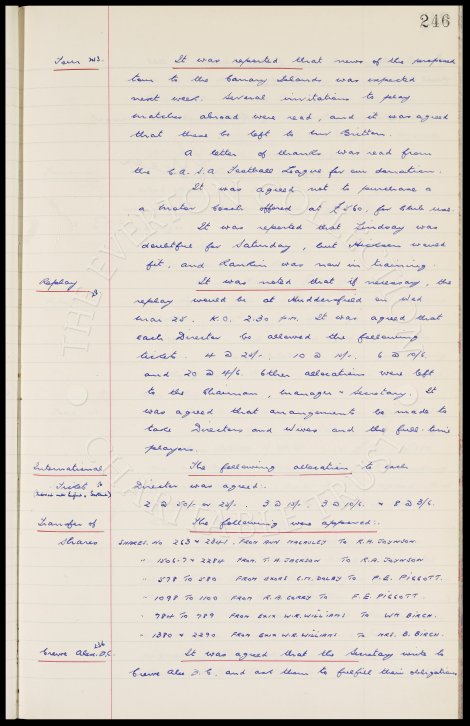 246
Tour 243. It was reported that news of the proposed
tour to the Canary Islands was expected
next week. Several invitations to play
matches abroad were read, and it was agreed
that these be left to Mr Britton.
A letter of thanks was read from
the C.A.I.A Football League for our donation.
It was agreed not to purchase a
a motor coach offered at £560, for Club use.
It was reported that Lindsay was
doubtful for Saturday, but Hickson would
fit, and Rankin was now in training
Replay It was noted that if necessary, the
replay would be at Huddersfield on Wed
Mar 25. K.O. 2.30 p.m. It was agreed that
each Director be allowed the following
tickets. 4 @ 25/-. 10 @ 10/-. 6 @ 10/6.
and 20 @ 4/6. Other allocations were left
to the Chairman, Manager & Secretary. It
was agreed that arrangements be made to
take Directors and Wives and the full-time
players.
International The following allocation to each
Tickets Director was agreed:-
2 @ 50/- or 25/-. 3 @ 15/-. 3 @ 10/6. & 8 @ 3/6.
Transfer of The following were approved:-
Shares SHARES. No 263 & 2341. FROM ANN MACAULEY TO R.A. JOYNSON.
" 1506-7 & 2284 FROM T.H. JACKSON TO R.A. JOYNSON
" 578 TO 580 FROM EXORS C.M. DOLBY TO F.E. PIGGOTT.
" 1098 TO 1100 FROM R.A. CORRY TO F.E. PIGGOTT.
" 784 TO 789 FROM EXIX W.R. WILLIAMS TO WM BIRCH.
" 1380 & 2290 FROM EXIX W.R. WILLIAMS TO MRS. B. BIRCH.
Crewe Alex. F.C. 236 It was agreed that the Secretary write to
Crewe Alex F.C. and ask them to fulfill their obligations